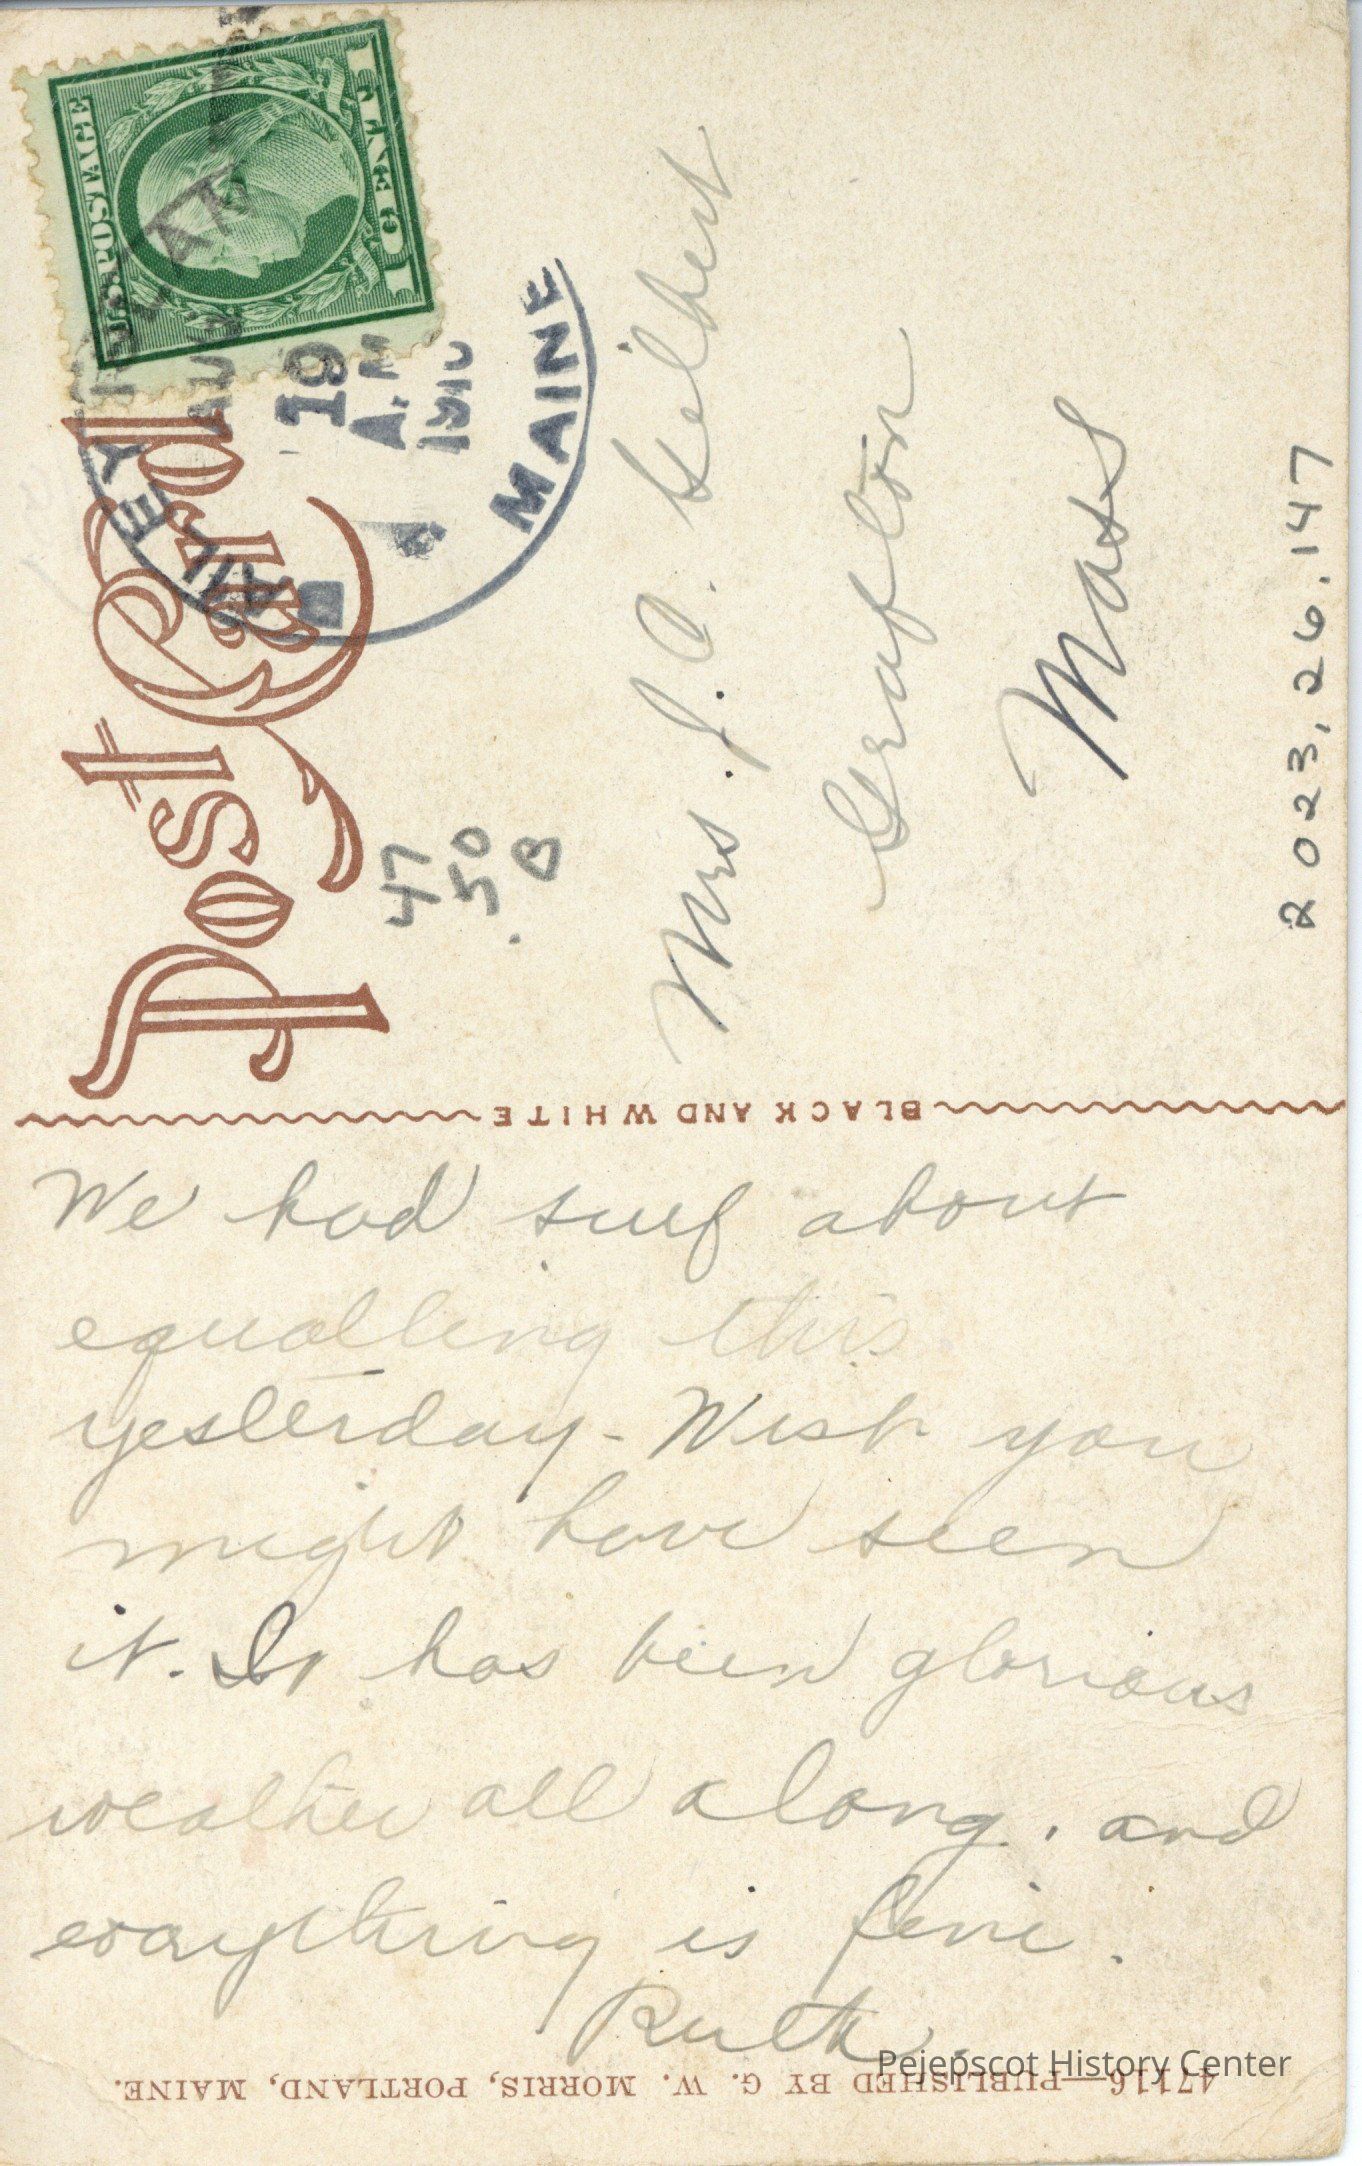 Post Card
U.S. POSTAGE
1 CENT 1
AILEY
19
A.M
1910
MAINE
47
50
B
Mrs. J. O. Gilbert
Grafton
Mass
2023.26.147
BLACK AND WHITE
We had surf about
equalling this
yesterday - Wish you
might have seen
it. It has been glorious
weather all along, and
everything is fine.
Ruth.
47116—PUBLISHED BY G. W. MORRIS, PORTLAND, MAINE.
Pejepscot History Center